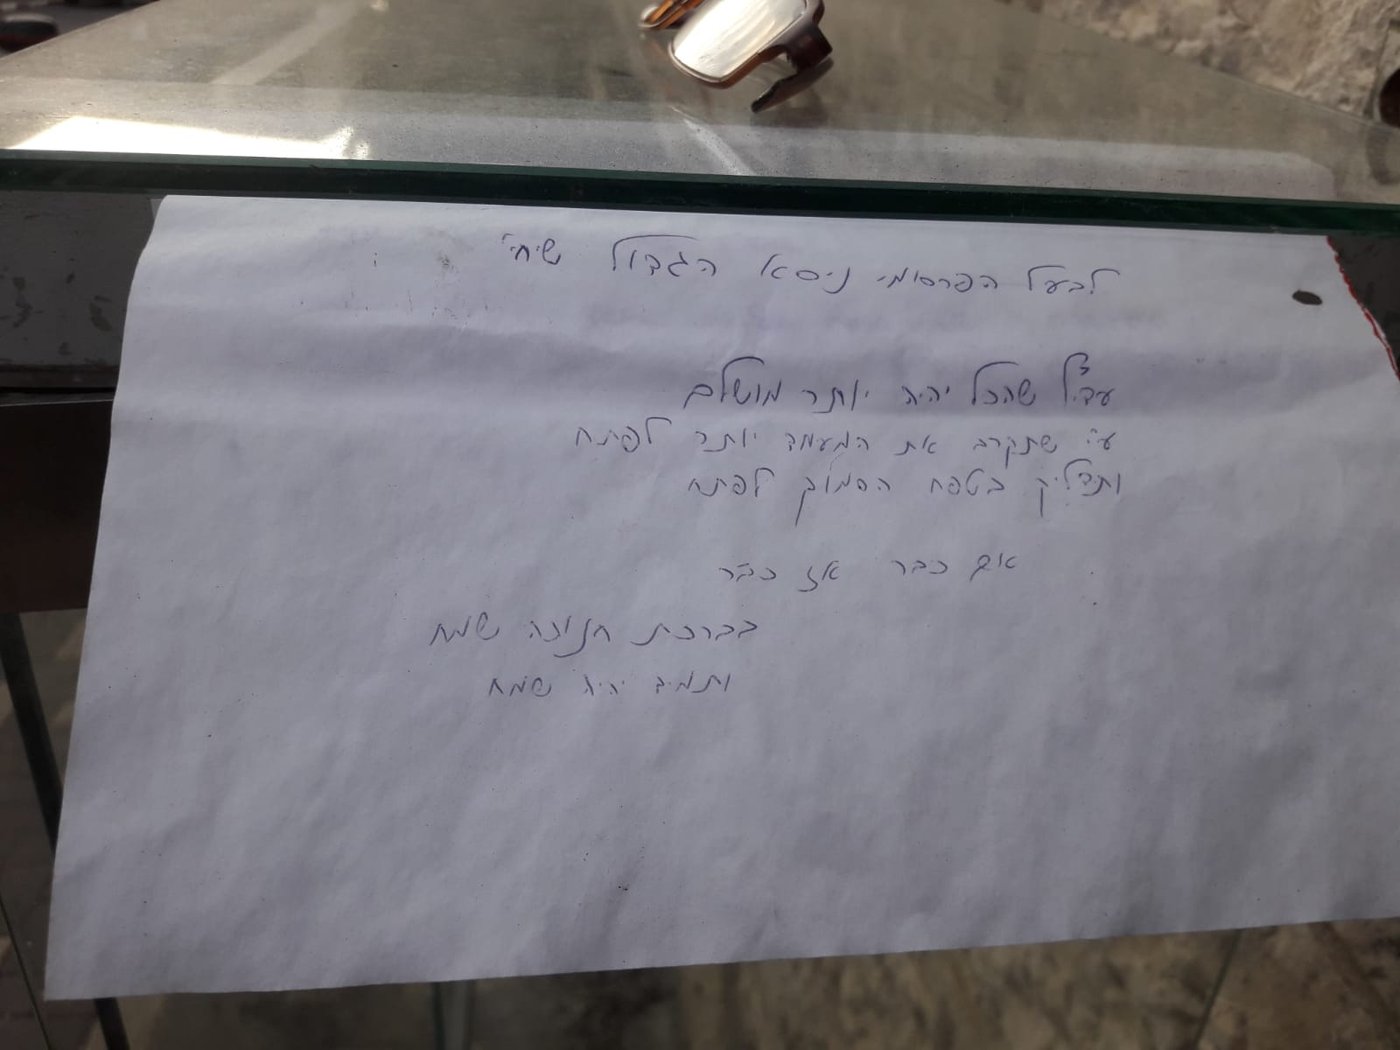 לבעל הפרסומי ניסא הגדול שיחי'
עדיף שהכל יהיה יותר מושלם
ע"י שתקרב את המעמד יותר לפתח
ותדליק בטפח הסמוך לפתח
אם כבר אז כבר
בברכת חנוכה שמח
ותמיד יהיה שמח